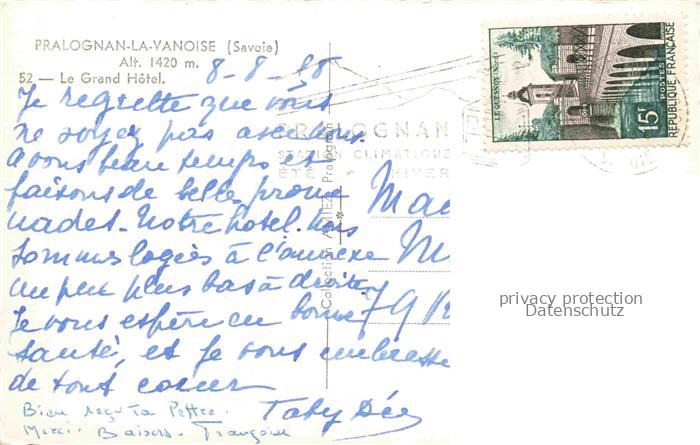 PRALOGNAN-LA-VANOISE (Savoie)
Alt. 1420 m.
52 — Le Grand Hôtel.
8-8-58
Je regrette que vous
ne soyez pas avec nous.
Avons beau temps et
faisons de belles prome
nades. Notre hotel. Nous
sommes logées à l'annexe
un peu plus bas à droite.
Je vous espère en bonne
santé, et je vous embrasse
de tout coeur
Taty
Bien reçu ta lettre.
Merci. Baisers. Françoise
Collection AMIEZ Pralognan
PRALOGNAN
STATION CLIMATIQUE
ÉTÉ HIVER
Mad
M
LE QUESNOY
15F
POSTES
REPUBLIQUE FRANÇAISE
privacy protection
Datenschutz